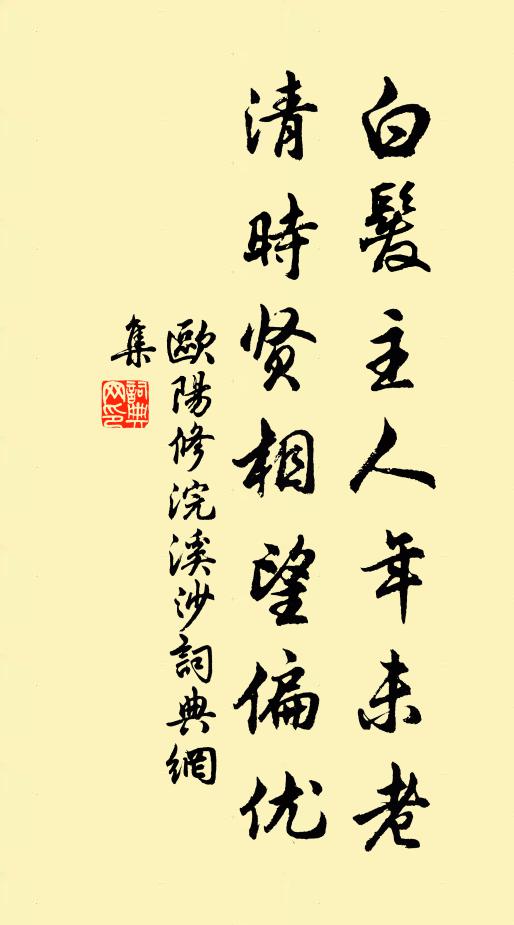 白髮主人年未老
清時贤相望偏优
歐陽修浣溪沙詞典網
集
詞典
网印